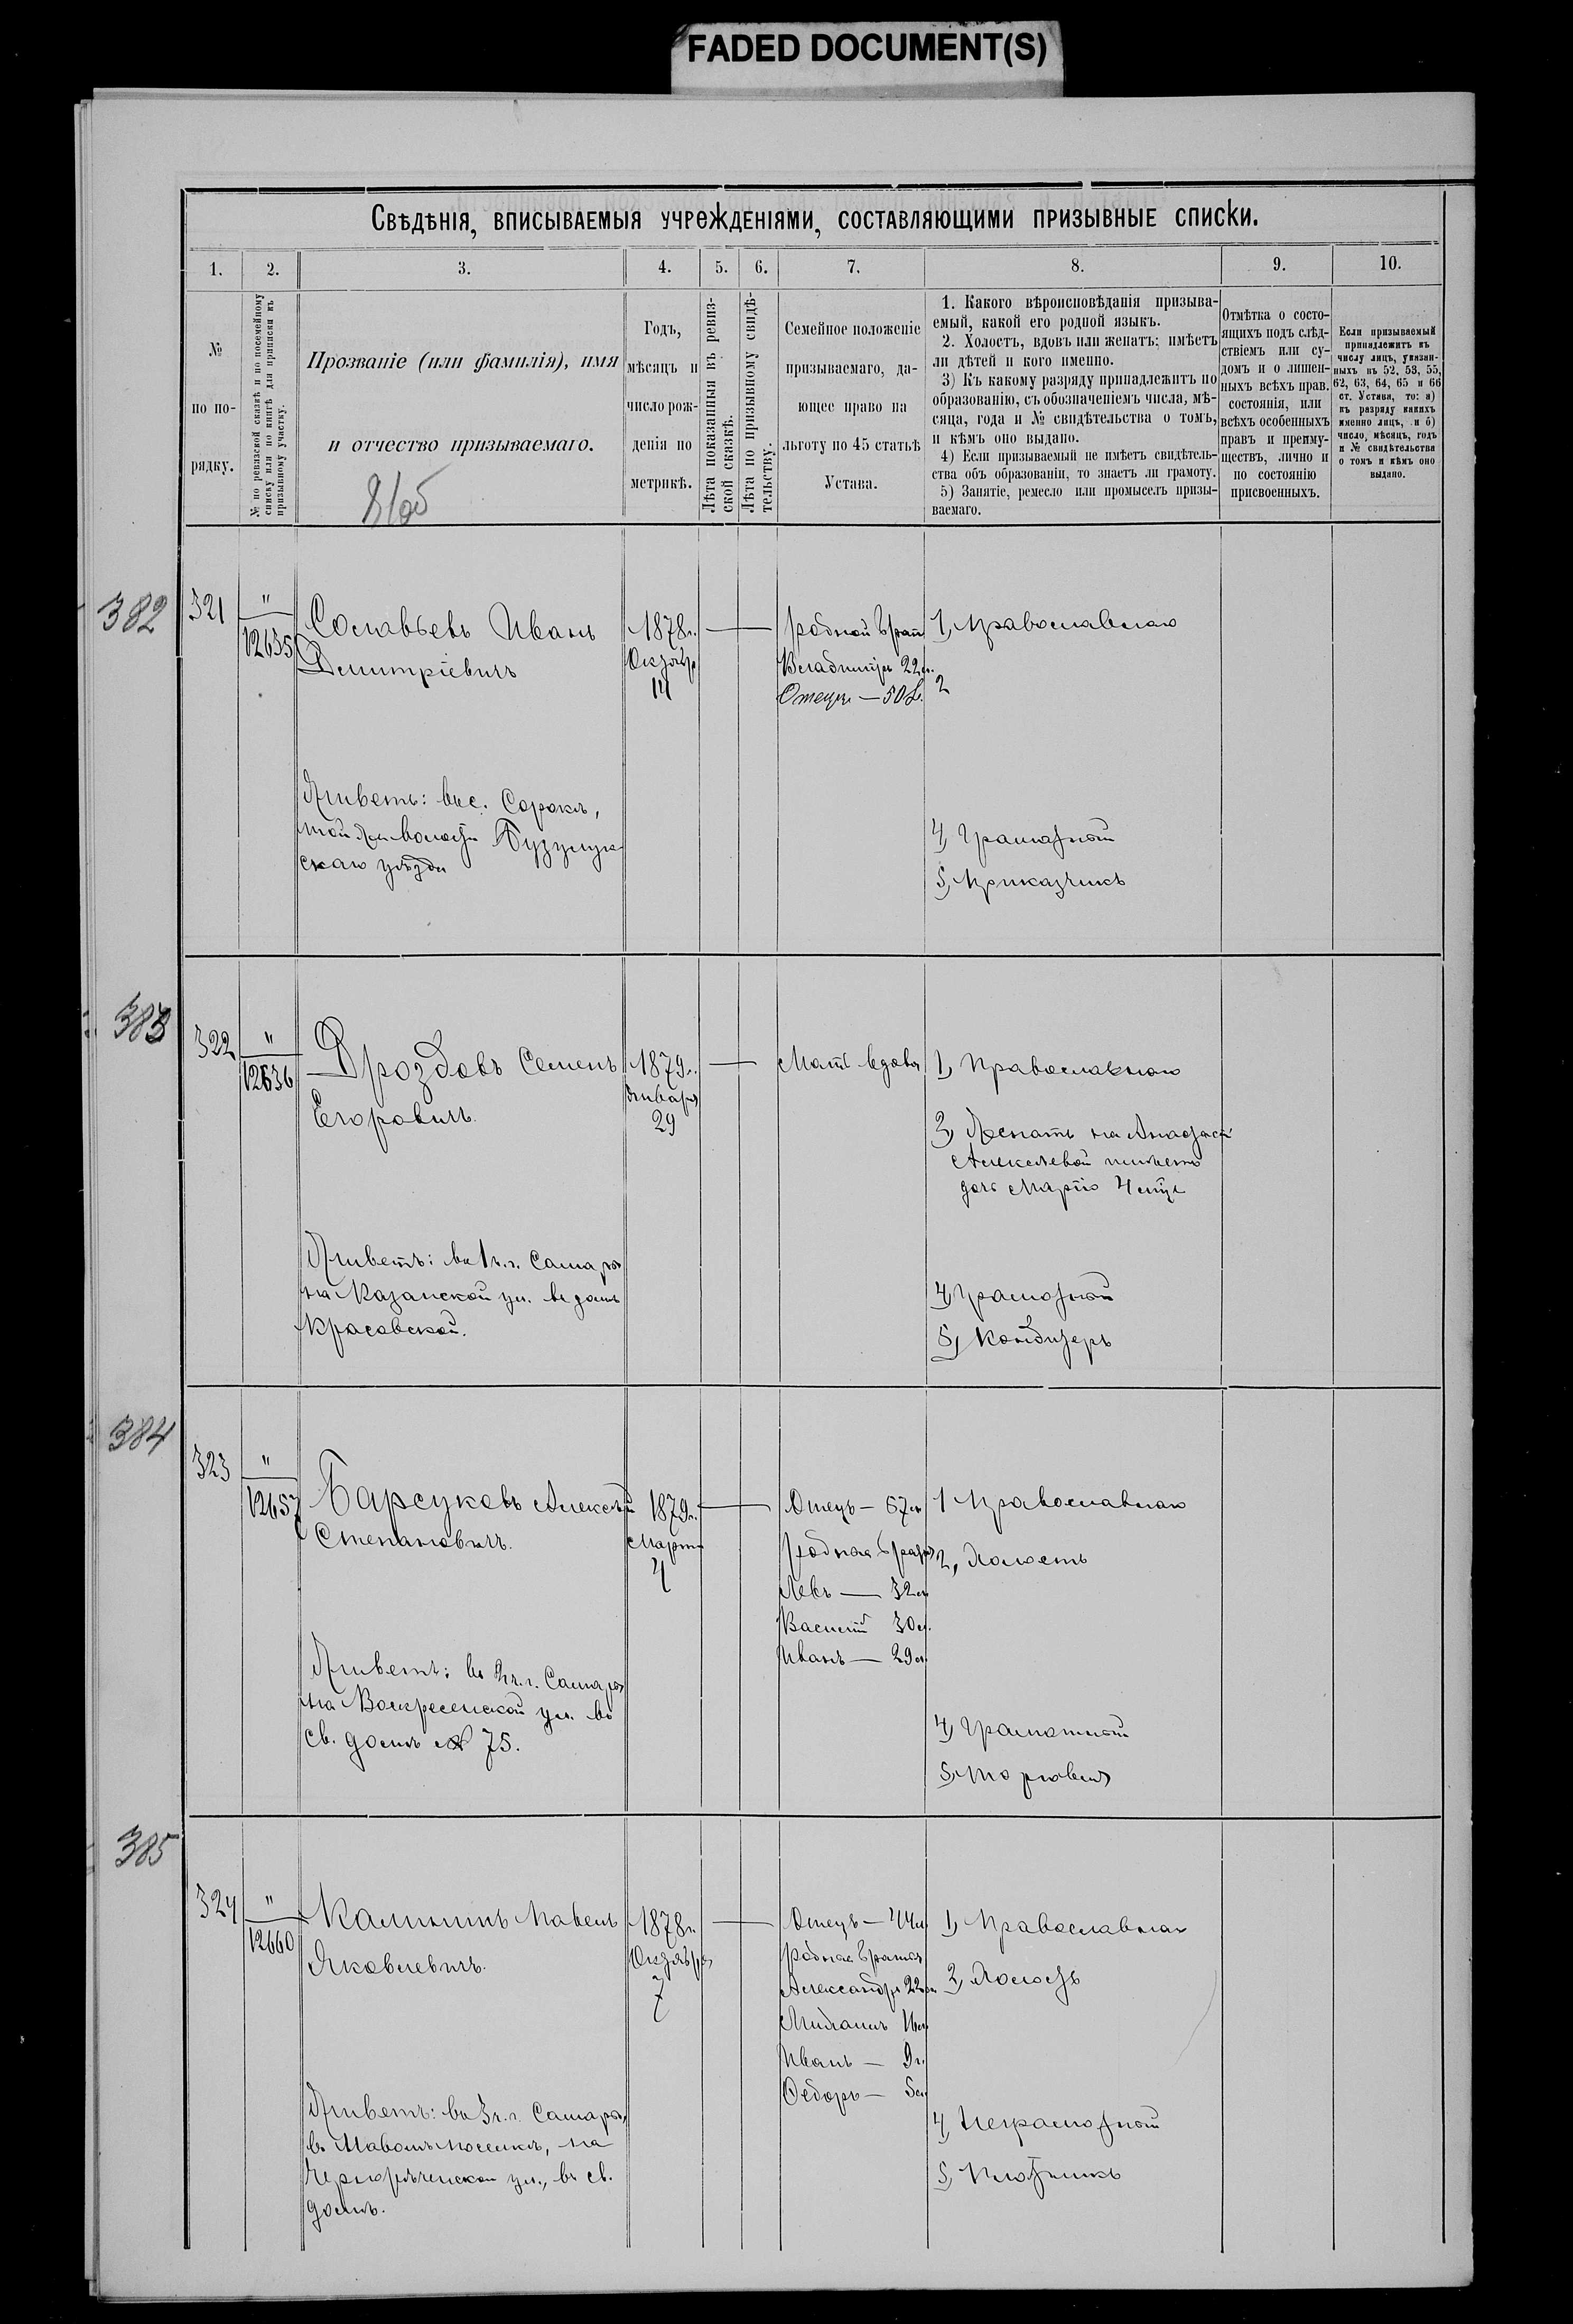 FADED DOCUMENT(S)
Свѣдѣнія, вписываемыя учрежденіями, составляющими призывные списки.
1. 2. 3. 4. 5. 6. 7. 8. 9. 10.
№
по по-
рядку.
№ по ревизской сказкѣ и по посемейному
списку или по книгѣ для приписки къ
призывному участку.
Прозваніе (или фамилія), имя
и отчество призываемаго.
Годъ,
мѣсяцъ и
число рож-
денія по
метрикѣ.
Лѣта показанныя въ ревиз-
ской сказкѣ.
Лѣта по призывному свидѣ-
тельству.
Семейное положеніе
призываемаго, да-
ющее право на
льготу по 45 статьѣ
Устава.
1. Какого вѣроисповѣданія призыва-
емый, какой его родной языкъ.
2. Холостъ, вдовъ или женатъ; имѣетъ
ли дѣтей и кого именно.
3) Къ какому разряду принадлежитъ по
образованію, съ обозначеніемъ числа, мѣ-
сяца, года и № свидѣтельства о томъ,
и кѣмъ оно выдано.
4) Если призываемый не имѣетъ свидѣтель-
ства объ образованіи, то знаетъ ли грамоту.
5) Занятіе, ремесло или промыселъ призы-
ваемаго.
Отмѣтка о состо-
ящихъ подъ слѣд-
ствіемъ или су-
домъ и о лишен-
ныхъ всѣхъ прав.
состоянія, или
всѣхъ особенныхъ
правъ и преиму-
ществъ, лично и
по состоянію
присвоенныхъ.
Если призываемый
принадлежитъ къ
числу лицъ, указан-
ныхъ въ 52, 53, 55,
62, 63, 64, 65 и 66
ст. Устава, то: а)
къ разряду какихъ
именно лицъ, и б)
число, мѣсяцъ, годъ
и № свидѣтельства
о томъ и кѣмъ оно
выдано.
382
321
"
12635
Соловьевъ Иванъ
Димитріевичъ
1878г.
Октября
14
родной братъ
Владиміръ 22л.
Отецъ — 50л.
1, Православнаго
2
Живетъ: въ с. Сорокѣ,
той же волости Бузулук-
скаго уѣзда
4, Грамотный
5, Приказчикъ
383
322
"
12636
Дроздовъ Семенъ
Егоровичъ.
1879г.
Января
29
Мать вдова
1, Православнаго
2, Женатъ на
Алексѣевой имѣетъ
дочь Марію
Живетъ: въ 1 ч. г. Самары
на Казанской ул. въ домѣ
Красовской.
4, Грамотный
5, Кондитеръ
384
323
"
12657
Барсуковъ Алексѣй
Степановичъ.
1879г.
Марта
4
Отецъ — 67л
родные братья
Левъ — 32л
Василій 30л.
Иванъ — 29л
1 Православнаго
2, Холостъ
Живетъ: въ 2 ч. г. Самары
на Воскресенской ул. въ
св. домѣ № 75.
4, Грамотный
5, Торговля
385
324
"
12660
Калининъ Павелъ
Яковлевичъ.
1878г.
Октября
7
Отецъ — 44л
родные братья
Александръ 22л
Михаилъ 11л
Иванъ — 9л.
Ѳедоръ — 5л
1, Православнаго
2, Холостъ
Живетъ: въ 3 ч. г. Самары,
въ Новомъ поселкѣ, на
Чернорѣченской ул., въ св.
домѣ.
4, Неграмотный
5, Плотникъ